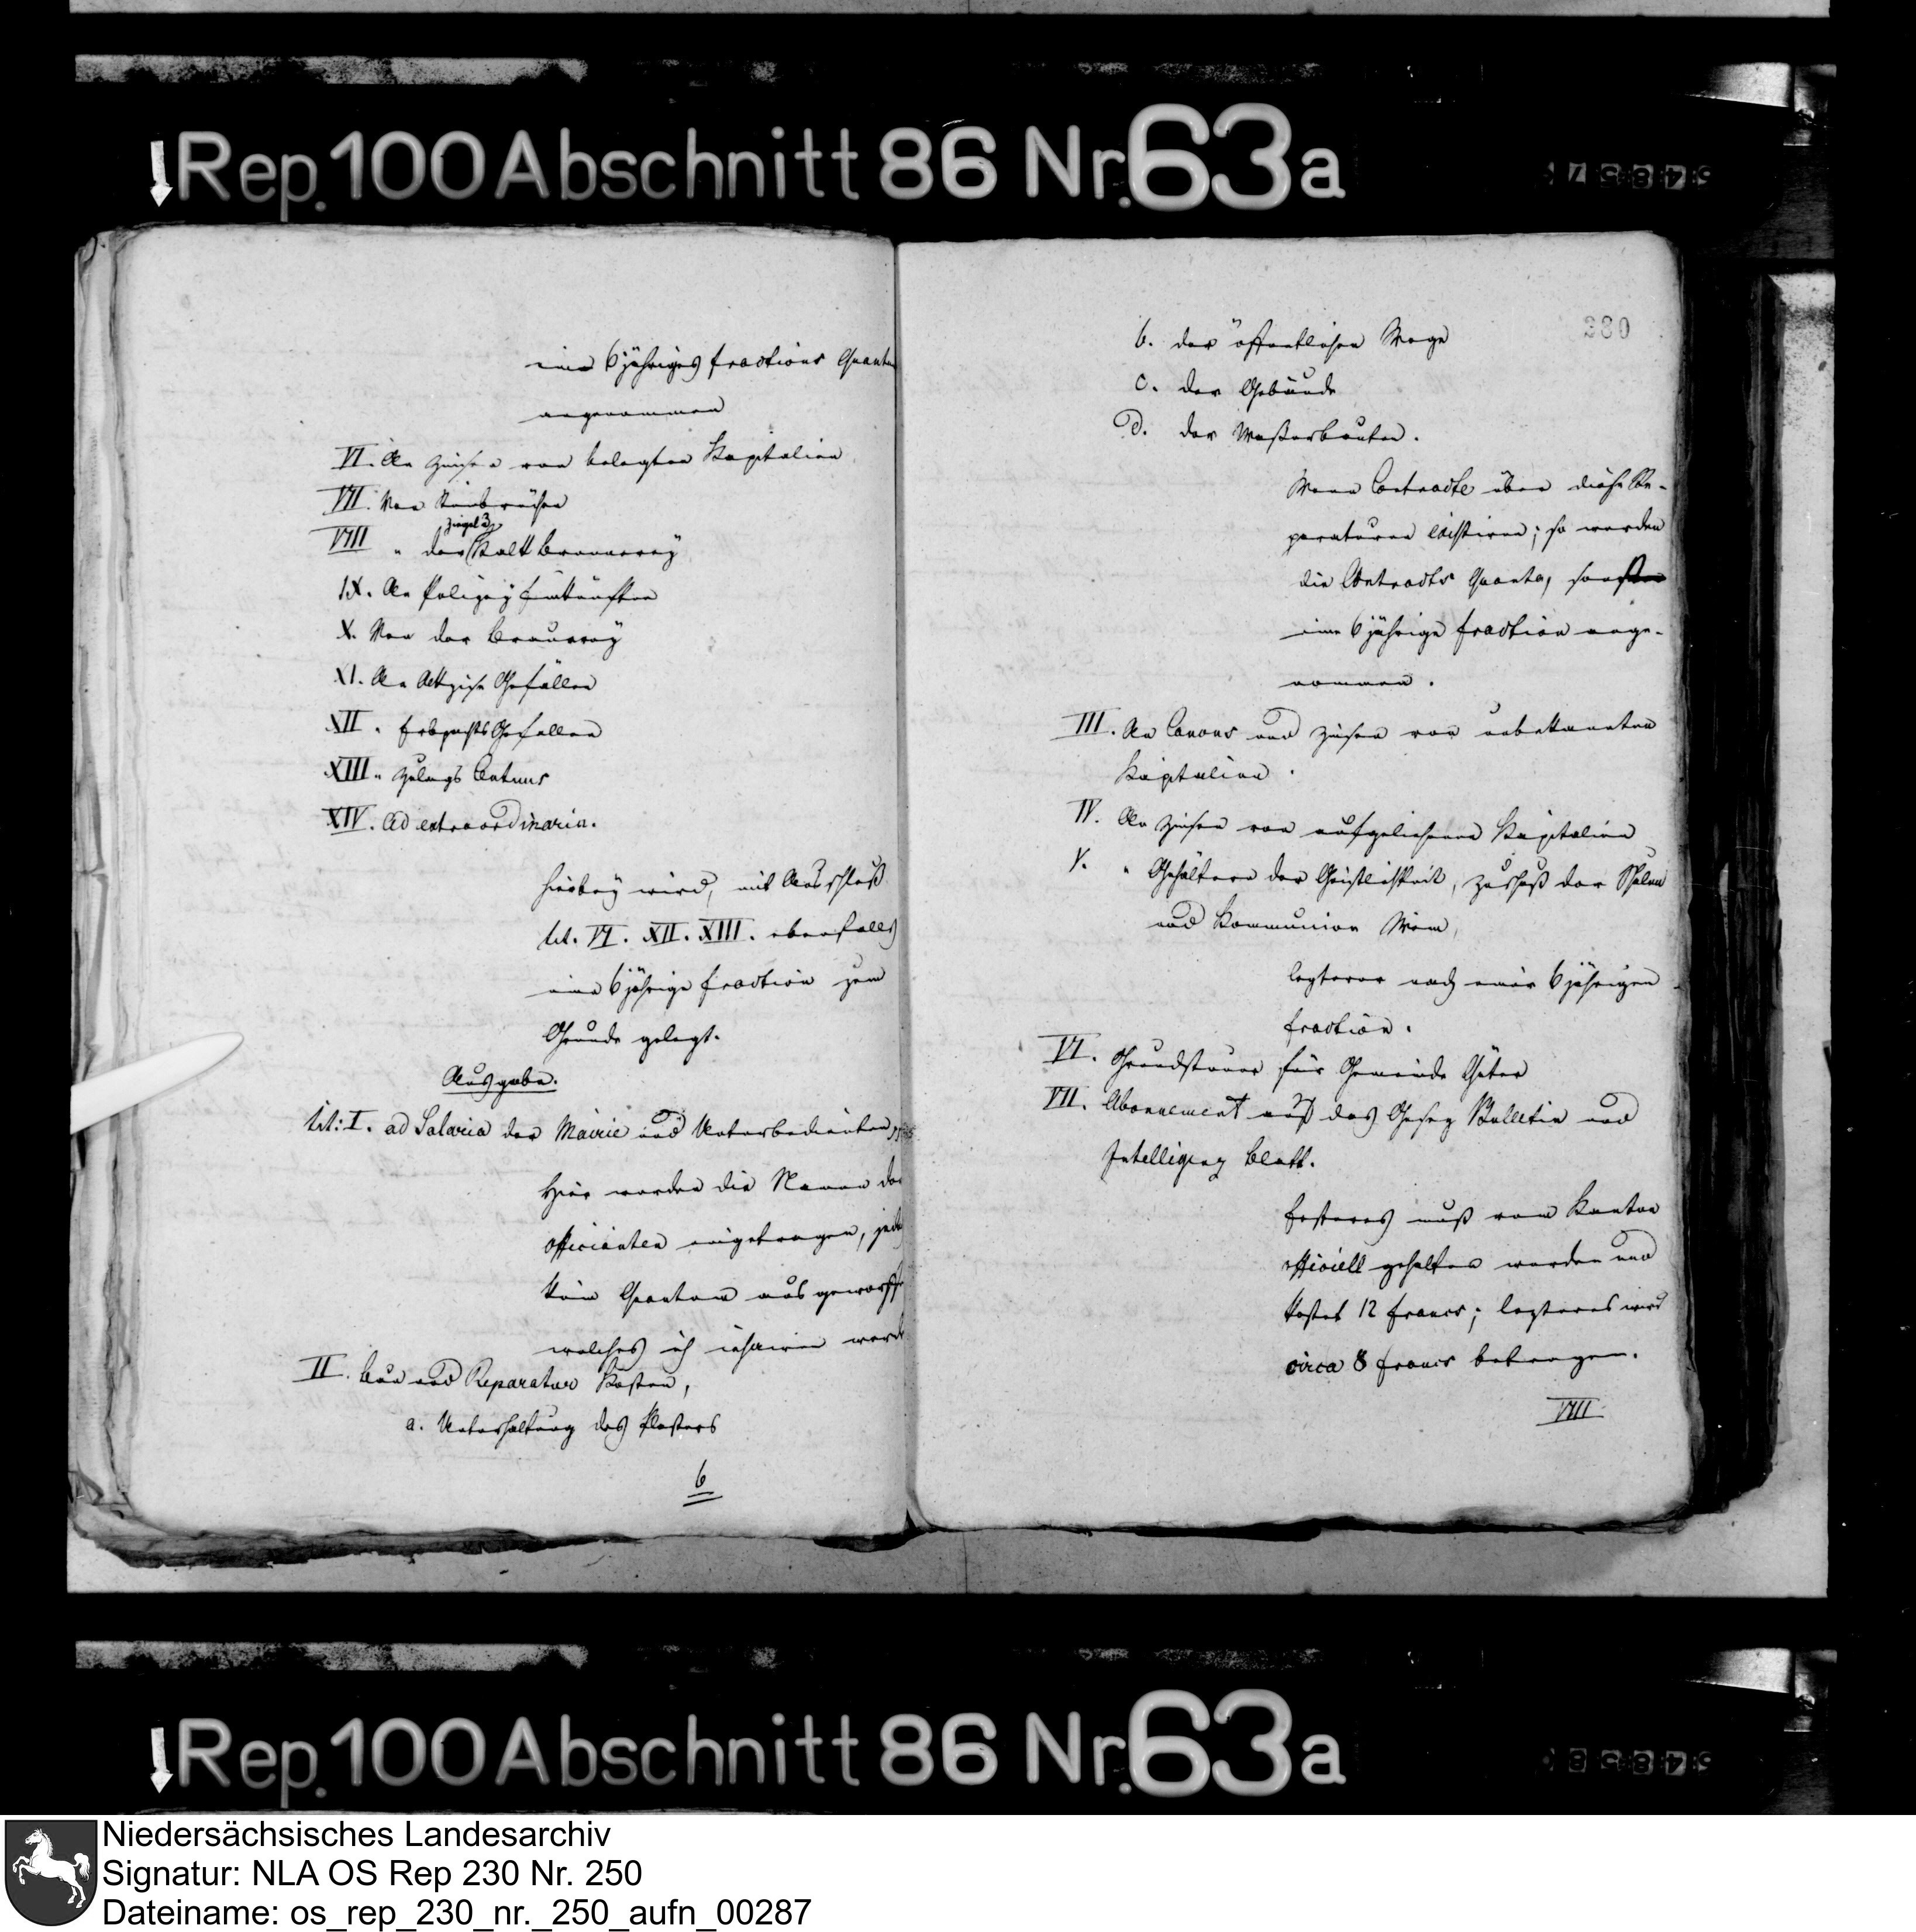 Rep. 100 Abschnitt 86 Nr. 63a
ein 6jähriges Fractions Quantum
angenommen
VI. An Zinsen von belegten Kapitalien
VII. Von Steinbrüchen
Ziegel &
VIII " der Kalk Brennerey
IX. An Polizey Einkünften
X. Von der Brauerey
XI. An Akzise Gefällen
XII. " Erbpachts Gefällen
XIII. " Zulags Centimes
XIV. Ad extraordinaria.
hierbey wird, mit Ausschluß
tit. VI. XII. XIII. ebenfalls
eine 6jährige Fraction zum
Grunde gelegt.
Ausgabe.
tit: I. ad Salaria der Mairie und Unterbedienten
Hier werden die Namen der
Officianten eingetragen, jedoch
kein Quantum ausgeworfen
welches ich
II. Bau und Reparatur Kosten,
a. Unterhaltung des Plasters
b
380
b. der öffentlichen Wege
c. der Gebäude
d. der Waßerbauten.
Wenn Contracte über diese Re-
peraturen existiren; so werden
die Contracts Quanta, sonst
eine 6jährige Fraction ange-
nommen.
III. An Canons und Zinsen von unbekannten
Kapitalien.
IV. An Zinsen von aufgeliehenen Kapitalien
V. " Gehältern der Geistlichkeit, Zuschuß der Schulen
und Kommunion Wein,
lezterer nach einer 6jährigen
Fraction.
VI. Grundsteuer für Gemeinde Güter
VII. Abonnement auf das Gesez Bulletin und
Intelligenz Blatt.
Ersteres muß vom Kanton
officiell gehalten werden und
kostet 12 Francs; lezteres wird
circa 8 Francs betragen.
VIII
Rep. 100 Abschnitt 86 Nr. 63a
Niedersächsisches Landesarchiv
Signatur: NLA OS Rep 230 Nr. 250
Dateiname: os_rep_230_nr._250_aufn_00287